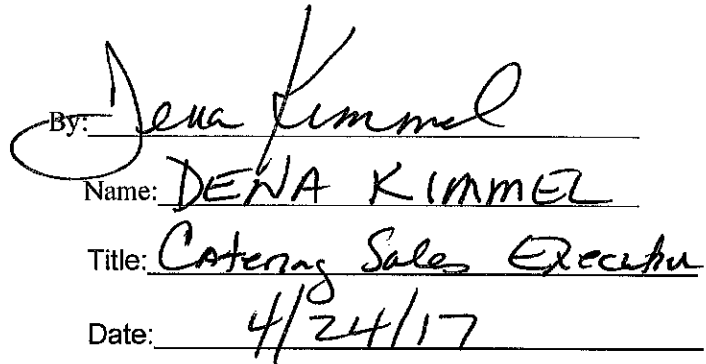 By: Dena Kimmel
Name: DENA KIMMEL
Title: Catering Sales Executive
Date: 4/24/17